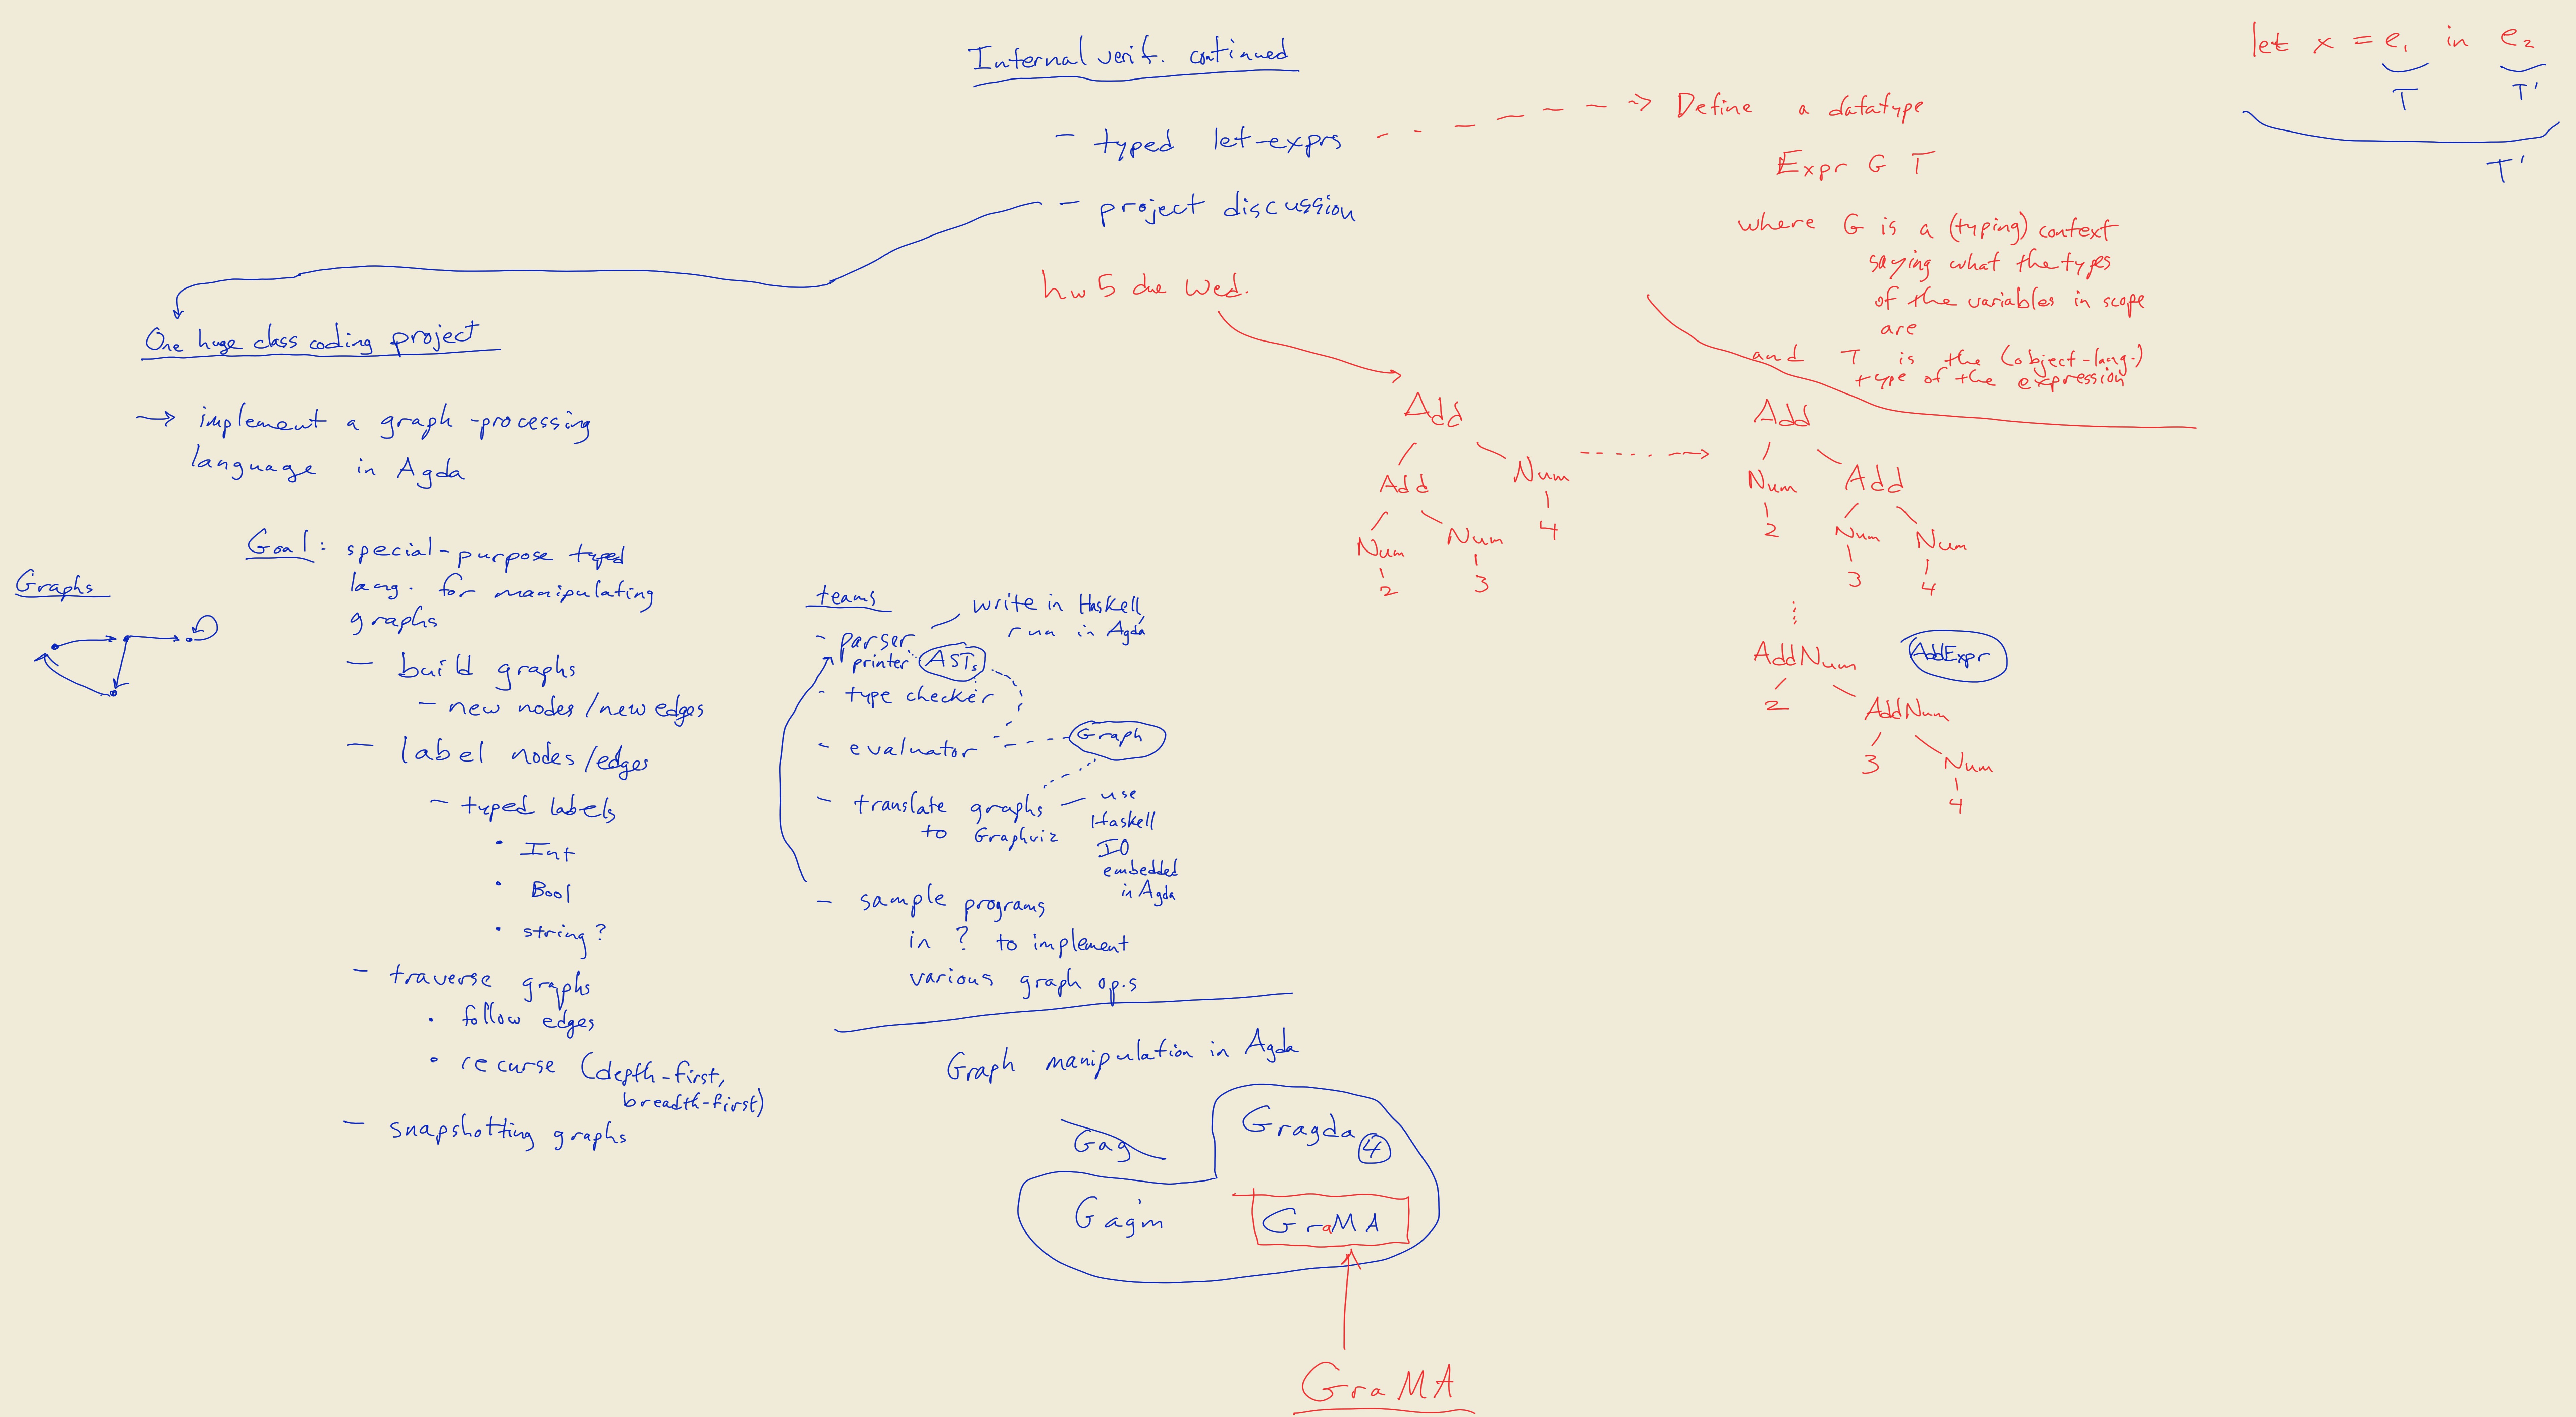 Internal verif. continued
- typed let-exprs
- project discussion
hw5 due Wed.
let x = e₁ in e₂
T
T'
T'
Define a datatype
Expr G T
where G is a (typing) context
saying what the types
of the variables in scope
are
and T is the (object-lang.)
type of the expression
One huge class coding project
→ implement a graph-processing
language in Agda
Goal: special-purpose typed
lang. for manipulating
graphs
- build graphs
- new nodes/new edges
- label nodes/edges
- typed labels
• Int
• Bool
• string?
- traverse graphs
• follow edges
• recurse (depth-first,
breadth-first)
- snapshotting graphs
Graphs
teams
- parser
printer
ASTs
write in Haskell,
run in Agda
- type checker
- evaluator
Graph
- translate graphs
to Graphviz
use
Haskell
IO
embedded
in Agda
- sample programs
in ? to implement
various graph op.s
Graph manipulation in Agda
Gag
Gragda ④
Gagm
GraMA
GraMA
Add
Add Num
Num Num 4
2 3
Add
Num Add
2 Num Num
3 4
AddNum
2 AddNum
3 Num
4
AddExpr